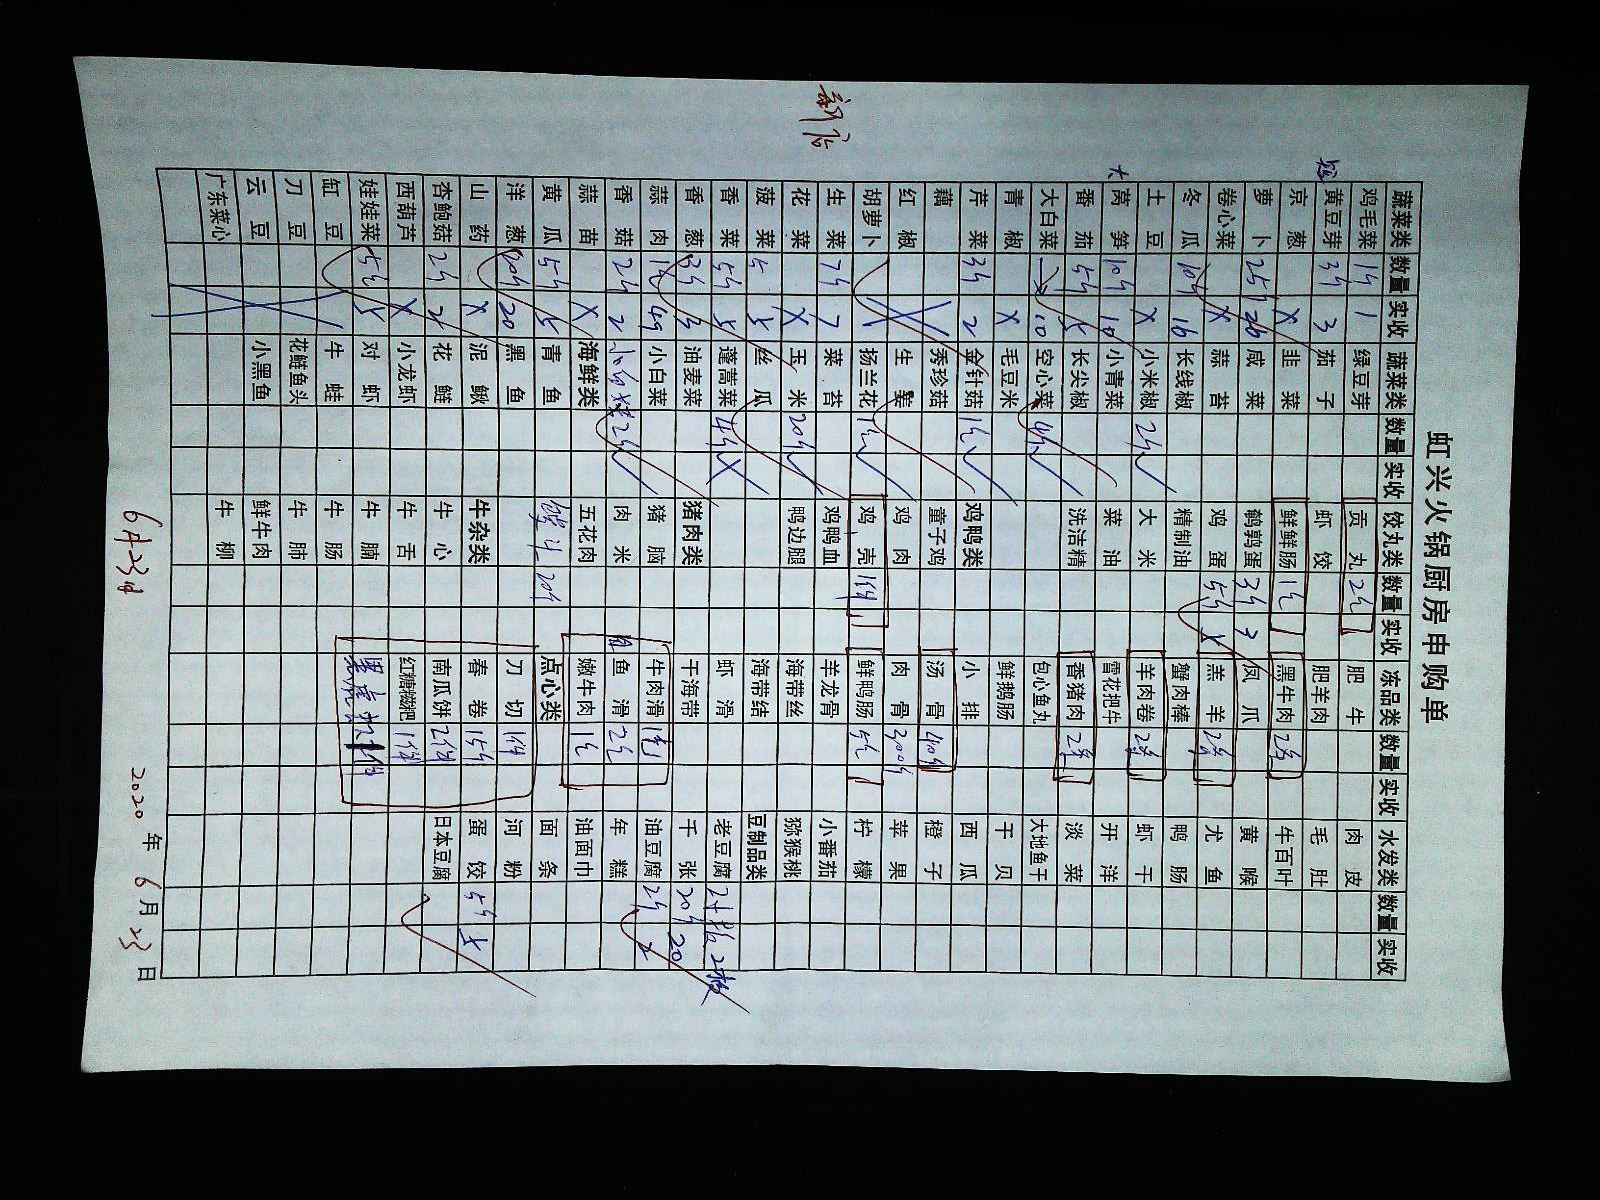 虹兴火锅厨房申购单
新店
蔬菜类 数量 实收 蔬菜类 数量 实收 饺丸类 数量 实收 冻品类 数量 实收 水发类 数量 实收
鸡毛菜 1斤 1 绿豆芽 贡丸 2包 肥牛 肉皮
黄豆芽 3斤 3 茄子 虾饺 肥羊肉 毛肚
京葱 X 韭菜 鲜鲜肠 1包 黑牛肉 2条 牛百叶
萝卜 25斤 26 咸菜 鹌鹑蛋 3斤 3 凤爪 黄喉
卷心菜 X 蒜苔 鸡蛋 5斤 5 羔羊 2条 尤鱼
冬瓜 10斤 16 长线椒 精制油 蟹肉棒 鸭肠
土豆 X 小米椒 2斤 ✓ 大米 羊肉卷 2条 虾干
大 莴笋 10斤 10 小青菜 菜油 雪花把牛 开洋
番茄 5斤 5 长尖椒 洗洁精 香猪肉 2条 淡菜
大白菜 10 空心菜 4斤 ✓ 包心鱼丸 大地鱼干
青椒 X 毛豆米 鲜鹅肠 干贝
芹菜 3斤 2 金针菇 1包 ✓ 鸡鸭类 小排 西瓜
藕 秀珍菇 童子鸡 汤骨 40斤 橙子
红椒 生姜 鸡肉 肉骨 300斤 苹果
胡萝卜 扬兰花 1包 ✓ 鸡壳 1件 鲜鸭肠 5包 柠檬
生菜 7斤 7 菜苔 鸡鸭血 羊龙骨 小番茄
花菜 X 玉米 20斤 ✓ 鸭边腿 海带丝 猕猴桃
菠菜 5 5 丝瓜 海带结 豆制品类
香菜 5斤 5 蓬蒿菜 4斤 X 虾滑 老豆腐 2板 2板
香葱 3斤 3 油麦菜 猪肉类 干海带 千张 20斤 20
蒜肉 小白菜 猪脑 牛肉滑 油豆腐 2斤 2
香菇 2斤 2 肉米 鱼滑 2包 年糕
蒜苗 X 海鲜类 五花肉 嫩牛肉 1包 油面巾
黄瓜 5斤 5 青鱼 20斤 点心类 面条
洋葱 20斤 20 黑鱼 刀切 1件 河粉
山药 X 泥鳅 牛杂类 春卷 1件 蛋饺 5斤 5
杏鲍菇 2斤 2 花鲢 牛心 南瓜饼 2件 日本豆腐
西葫芦 X 小龙虾 牛舌 红糖糍粑 1件
娃娃菜 5包 5 对虾 牛腩
缸豆 牛蛙 牛肠
刀豆 花鲢鱼头 牛肺
云豆 小黑鱼 鲜牛肉
广东菜心 牛柳
6月23日 2020年6月23日